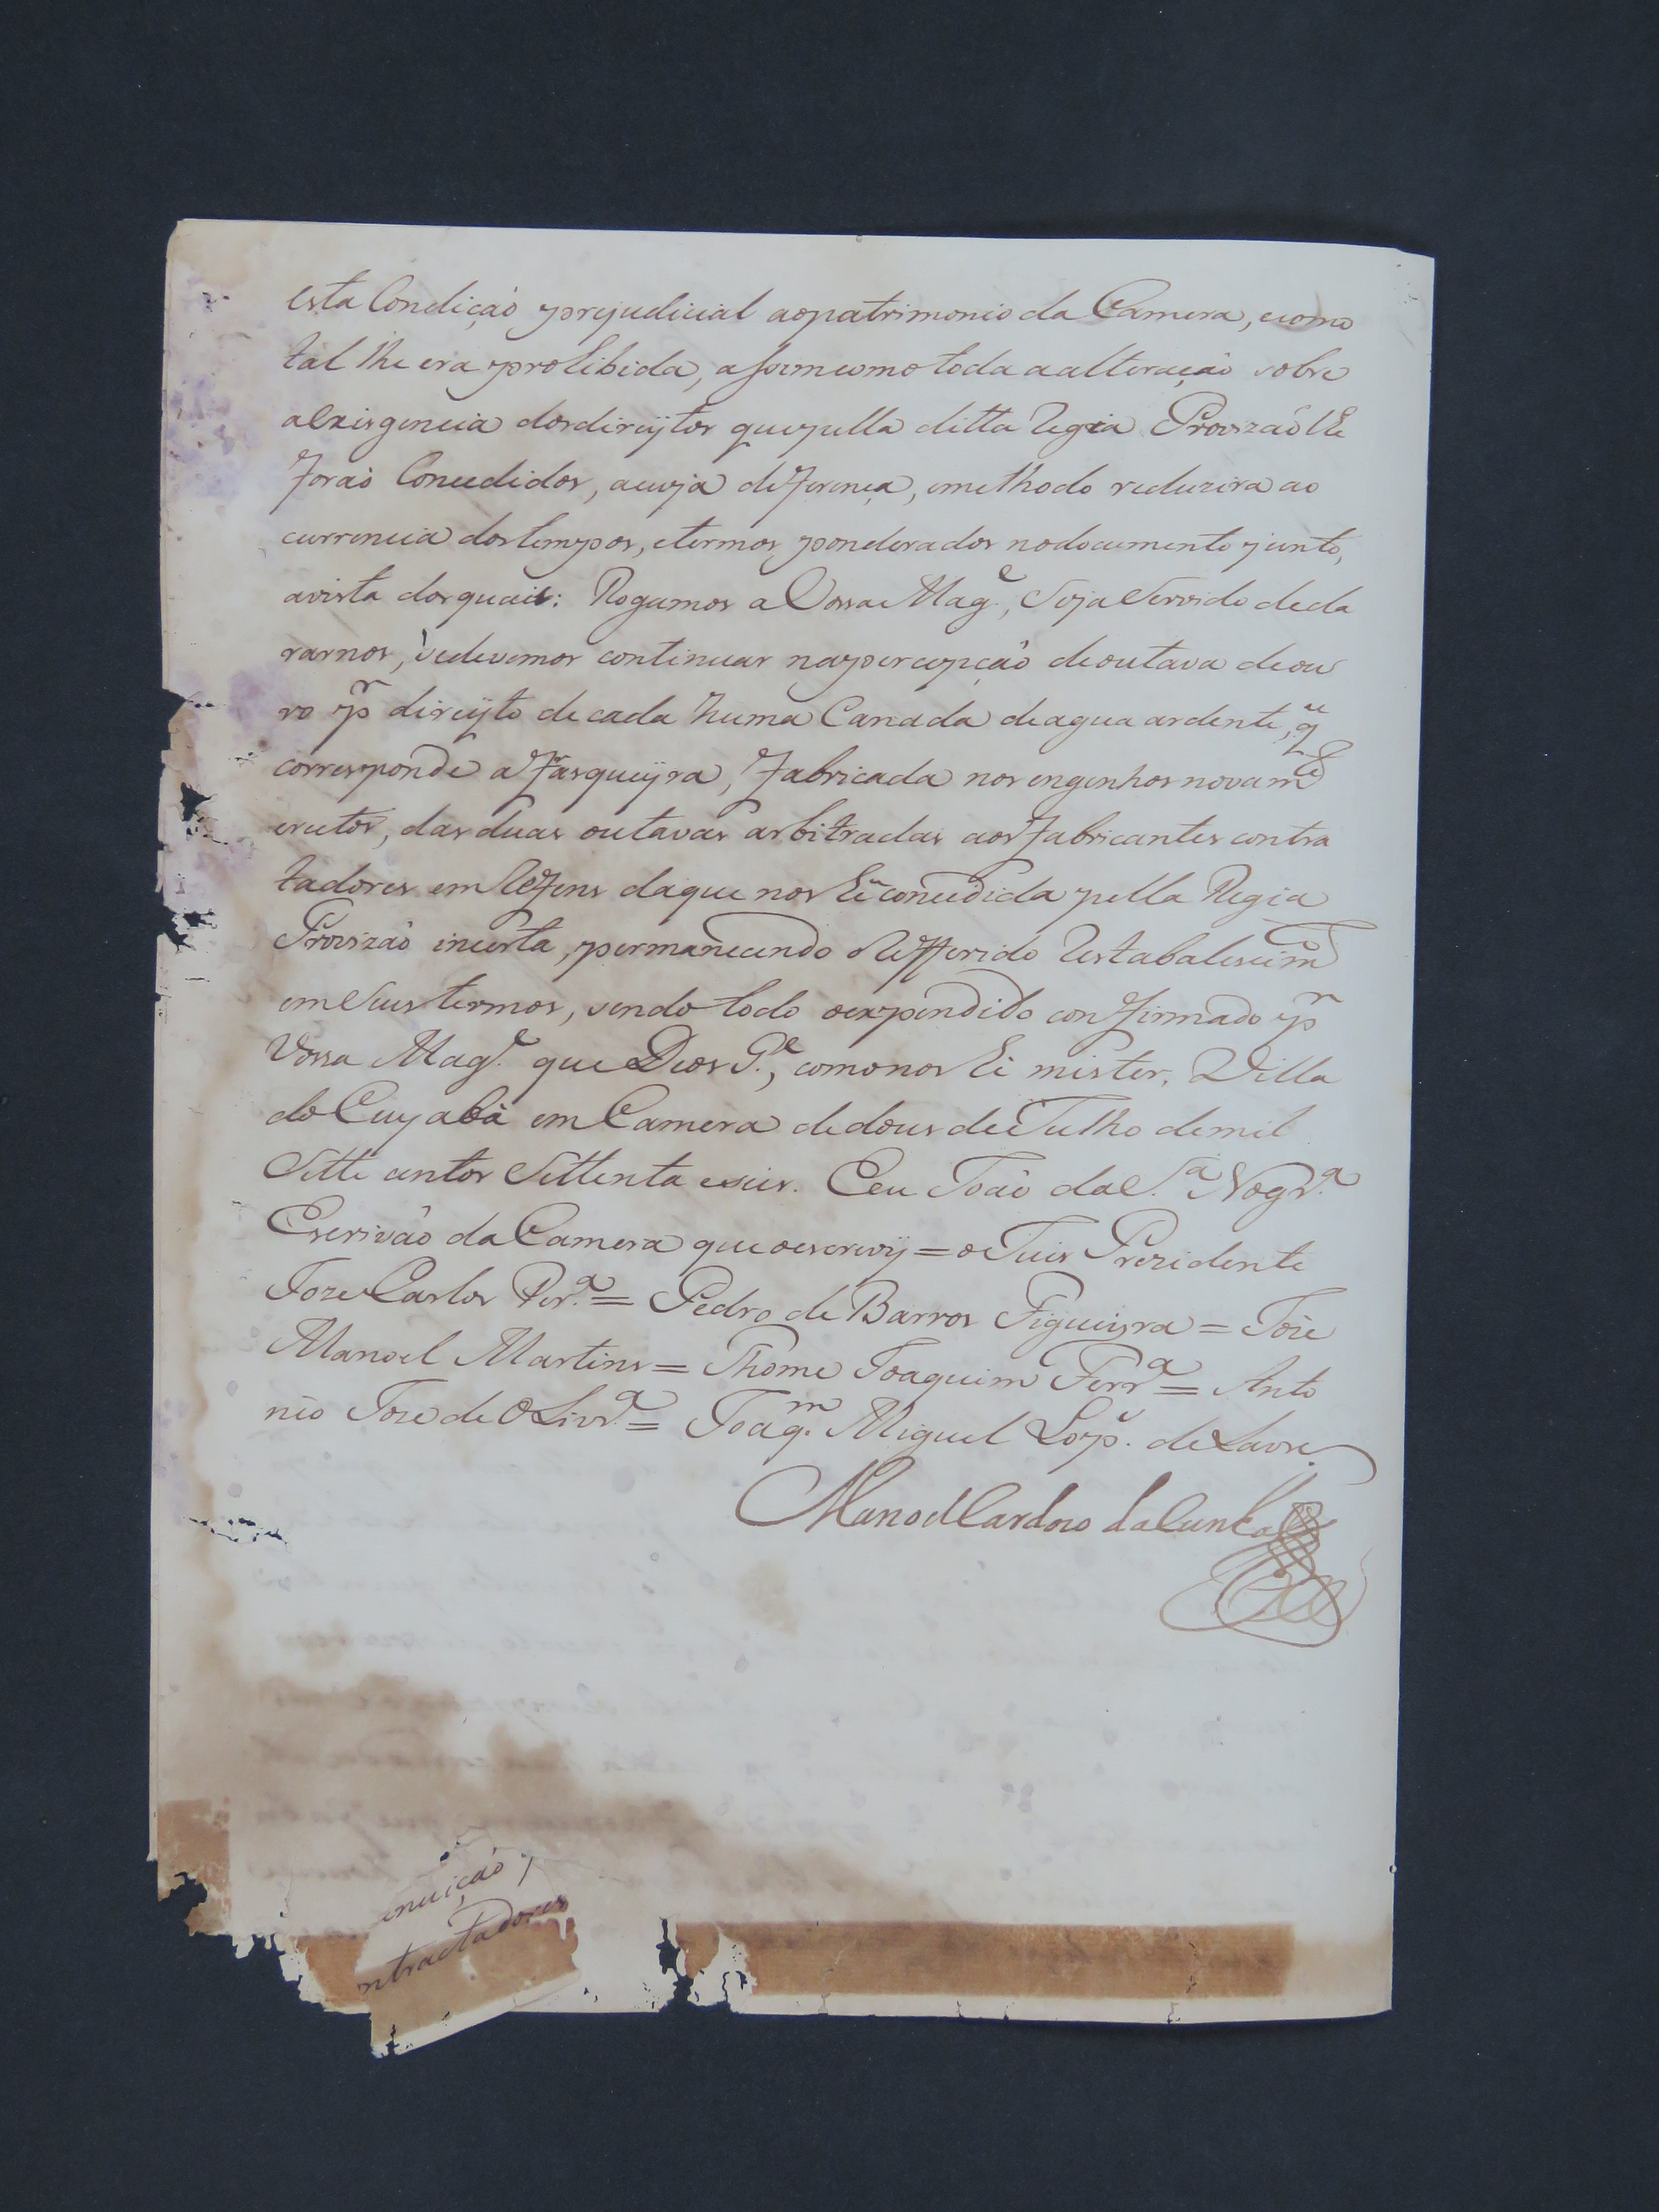 esta Condição prejudicial aopatrimonio da Camera, ecomo
tal lhe era prohibida, assimcomo toda aalteração sobre
aexisgencia dosdireÿtos quepella ditta Regia Provizaõ lhe
foraõ Concedidos, acuja deferença, emethodo reduzira ao
currencia dostempos, etermos ponderados nodocumento junto,
avista dosquais: Rogamos a Vossa Mag.e, Seja Servido decla
rarnos, sedevemos continuar napercepçaõ deoutava deou
ro p.r direÿto de cada huma Canada deagua ardente, q.e
corresponde a frasqueÿra, fabricada nos engenhos novam.te
erectos, das duas outavas arbitradas aos fabricantes contra
tadores em Refens daque nos he concedida pella Regia
Provizaõ incerta, permanecendo o Refferido Restabalescim.to
em Seus termos, sendo todo oexpendido confirmado p.r
Vossa Mag.e que Deos G.e, comonos he mister. Villa
do Cuyabà em Camera dedous de Julho demil
Sette centos Settenta eseis. Eeu Joaõ da S.a Nogr.a
Escrivaõ da Camera que oescrevÿ = o Juis Prezidente
Joze Carlos Per.a = Pedro de Barros Figueÿra = Joze
Manoel Martins = Thome Joaquim Ferr.a = Anto
nio Joze de Olivr.a = Joaq.m Miguel Lop.s de Lavre.
Manoel Cardozo da Cunha
enuiçaõ,
ntractadores